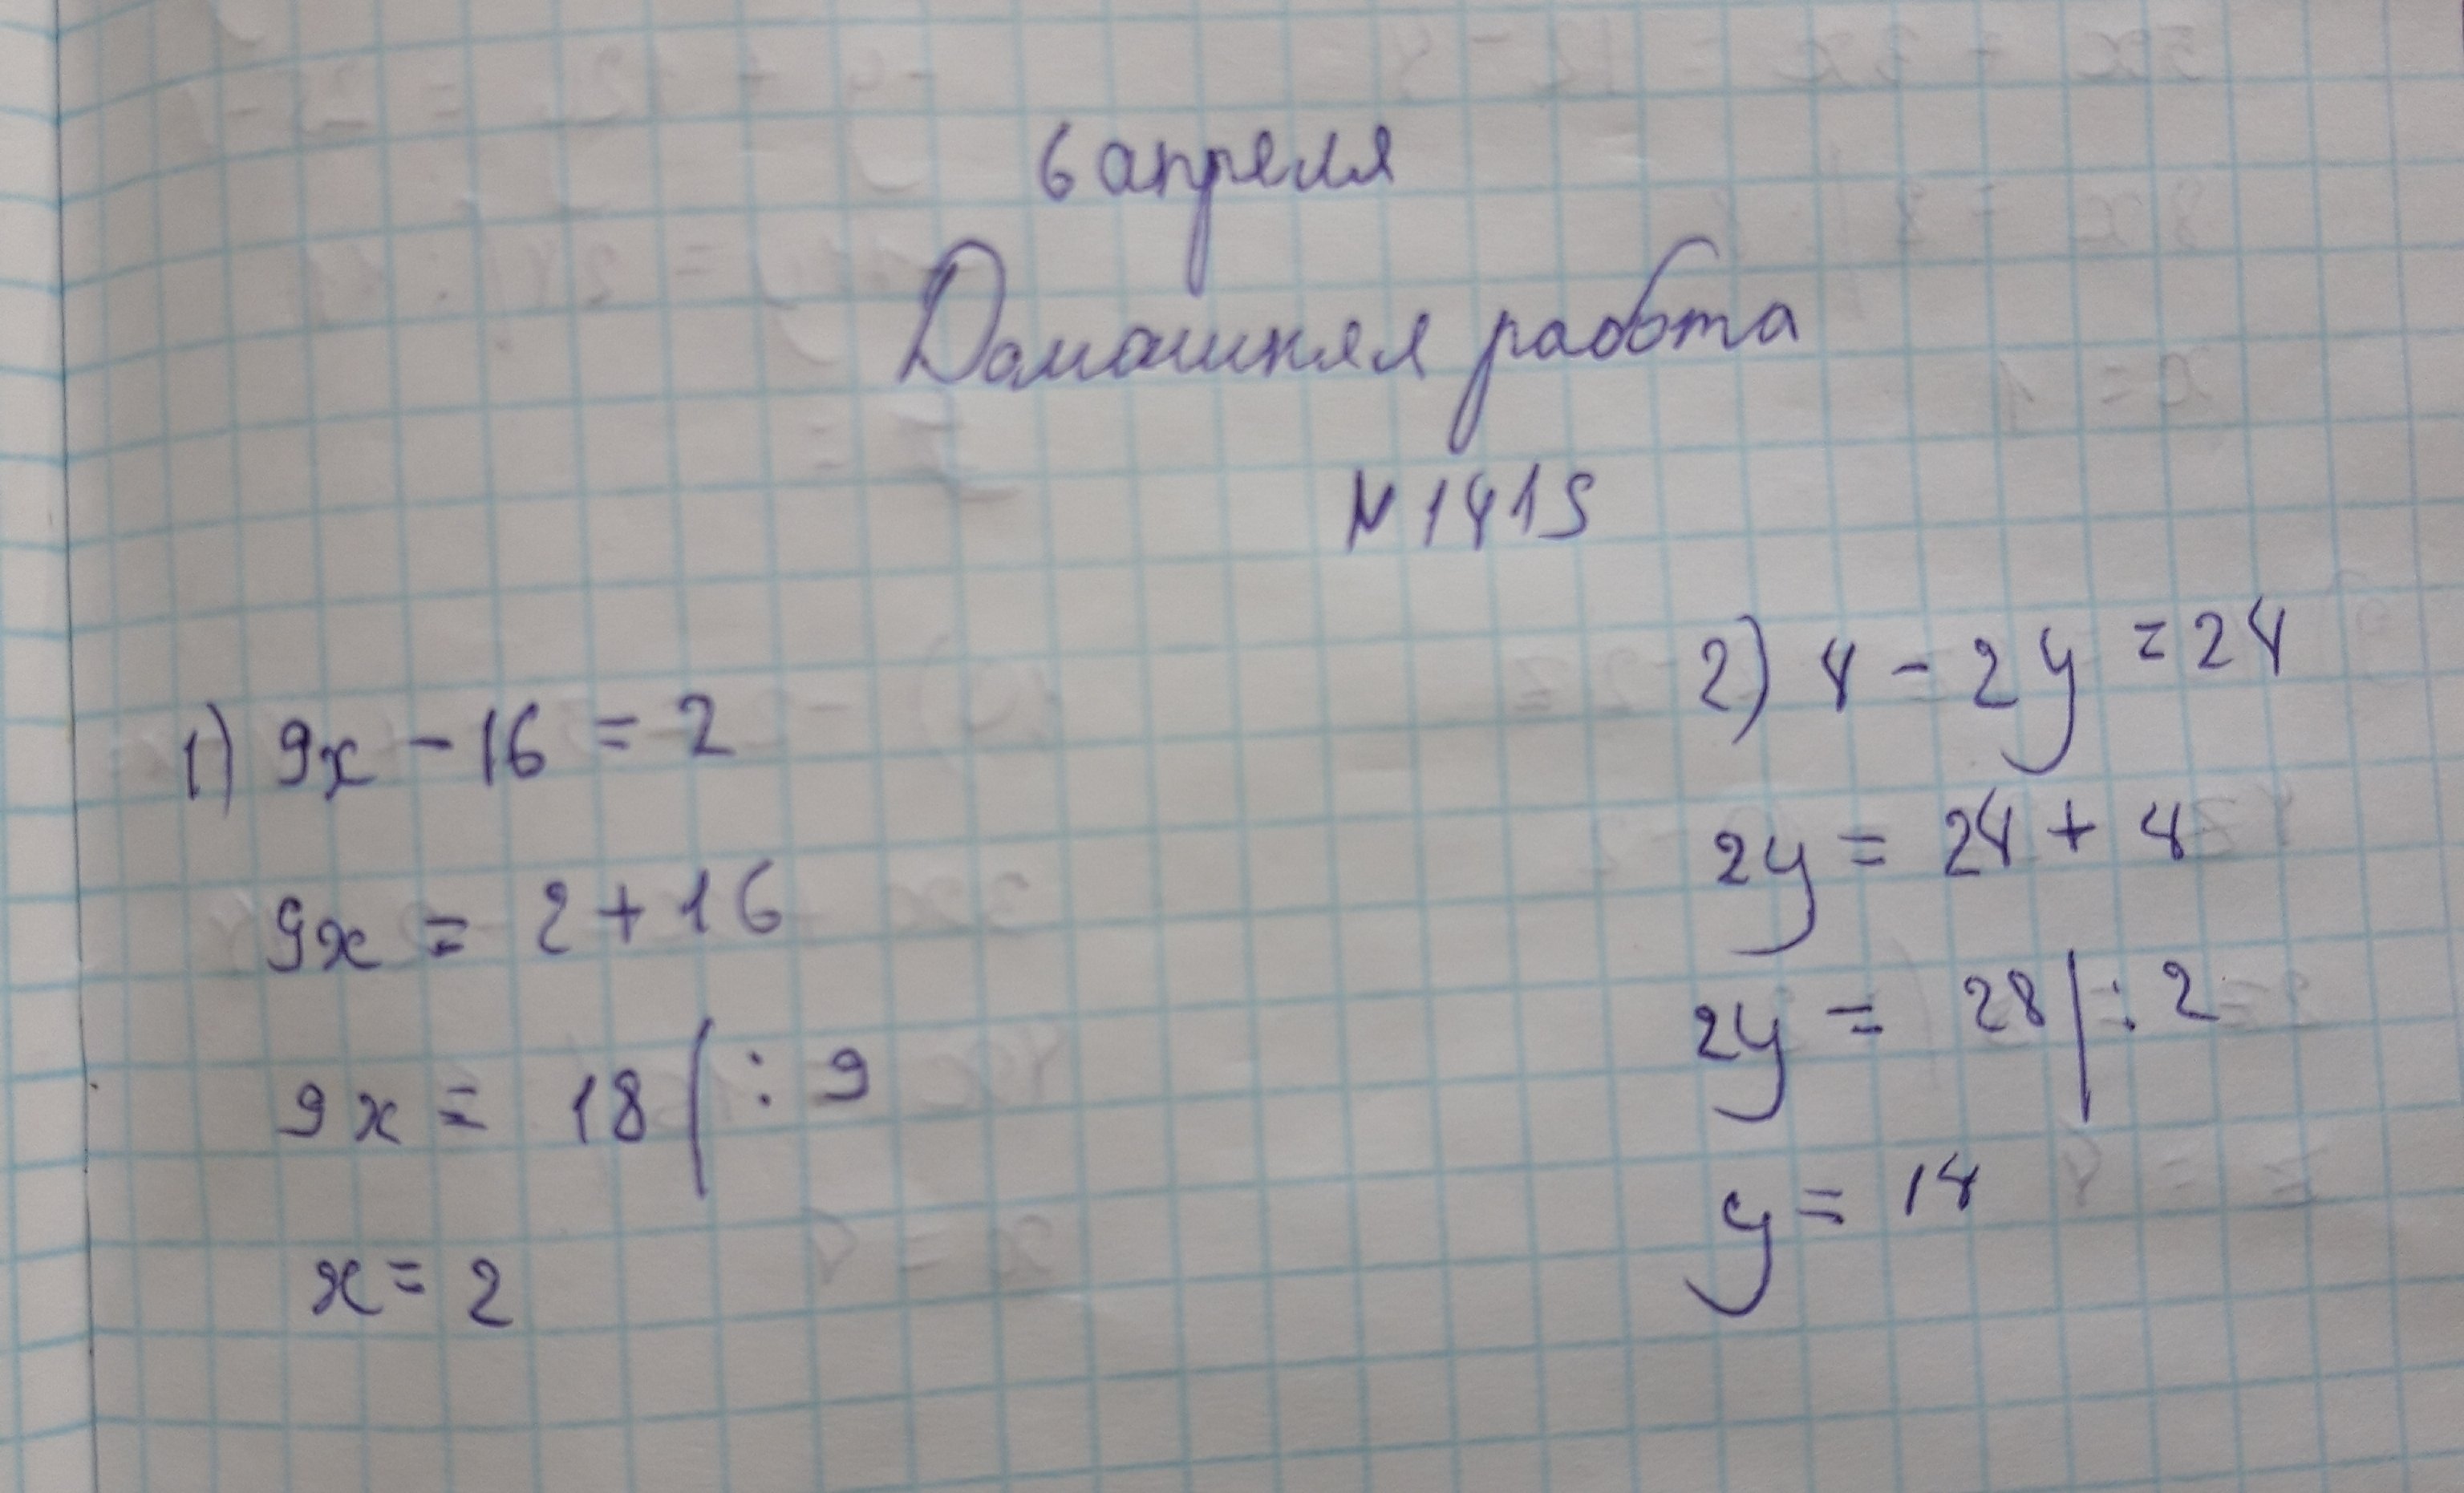 6 апреля
Домашняя работа
№ 1415
1) 9x - 16 = 2
9x = 2 + 16
9x = 18 | : 9
x = 2
2) 4 - 2y = 24
2y = 24 + 4
2y = 28 | : 2
y = 14